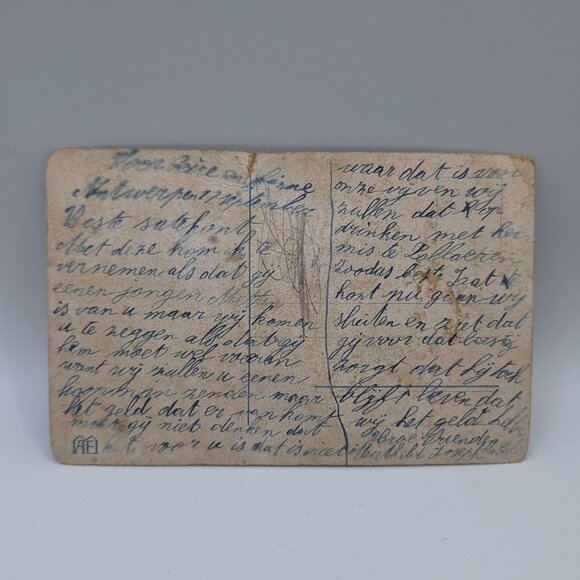 Voor
Antwerpen 17 september
Beste
Met deze kom ik te
vernemen als dat gij
eenen jongen
is van u maar wij komen
u te zeggen als dat gij
hem moet wel voeren
want wij zullen u eenen
zenden maar
het geld dat er van komt
moet gij niet denken dat
het voor u is dat is niet
AH
waar dat is voor
onze vijven wij
zullen dat op
drinken met ker
mis te
Zoodus beste
gaan wij
sluiten en ziet dat
gij voor dat beestje
zorgt dat hij toch
blijft leven dat
wij het geld
Vrienden
Joseph